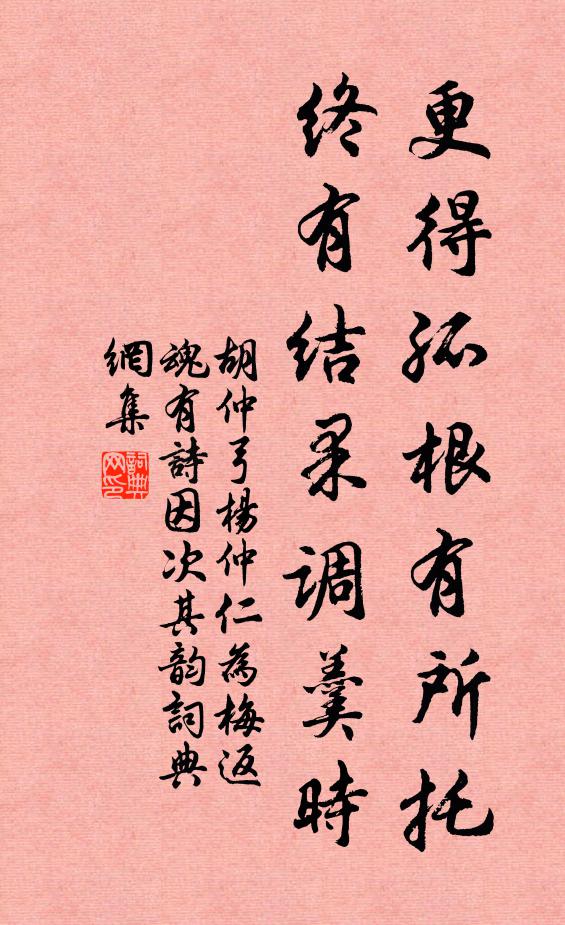 更得孤根有所托
终有结果调羹時
胡仲弓楊仲仁為梅返
魂有詩因次其韵詞典
網集
詞典网印